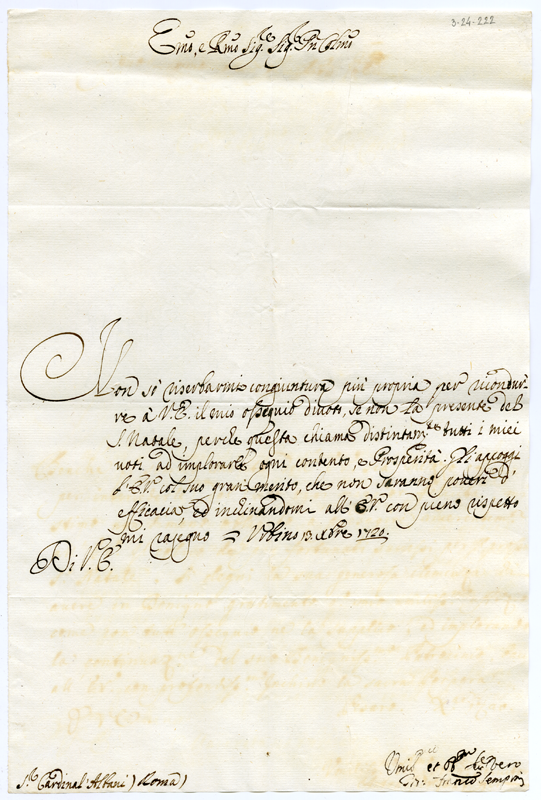 3-24-222
Emo, e Rmo Sig.re Sig.re Pn Colmo
Non sò riserbarmi congiuntura più propria per ricondur-
re à V.E. il mio ossequio divoto, se non la presente del
S. Natale, perche questa chiama distintam.te tutti i miei
voti ad implorarle ogni contento, e Prosperità. Gli appoggi
l'E.V. col suo gran merito, che non saranno poveri d'
efficacia, ed inchinandomi all'E.V. con pieno rispetto
mi rasegno = Urbino 13. Xbre 1720.
Di V.E.
Umil et
Sr. Cardinal Albani) Roma)